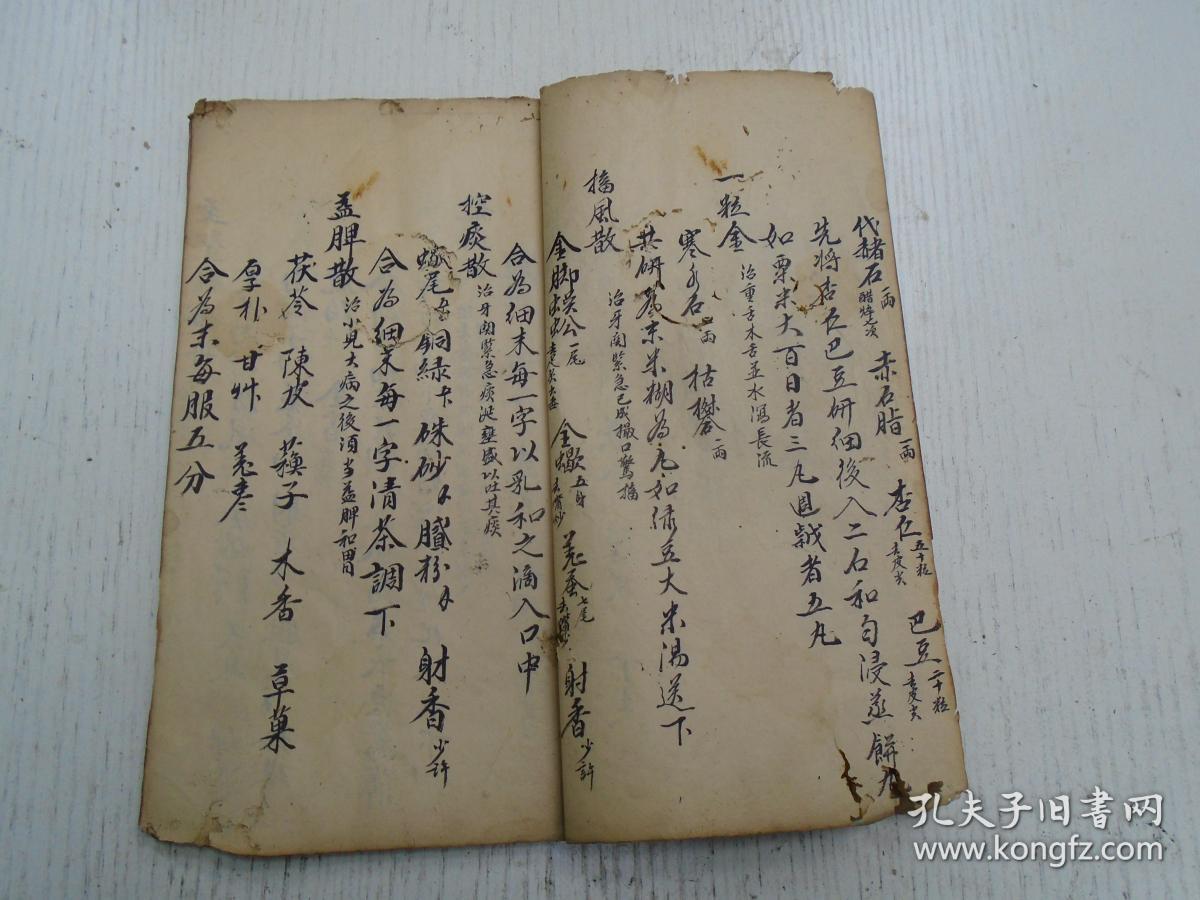 代赭石一两醋煅 赤石脂一两 杏仁五十粒去皮尖 巴豆二十粒去皮尖
先将杏仁巴豆研细後入二石和匀浸蒸餅丸
如粟米大百日者三丸週歲者五丸
一粒金 治重舌木舌並水瀉長流
寒水石一两 枯礬一两
共研為末米糊為丸如绿豆大米湯送下
搐風散 治牙関緊急已成撮口驚搐
金脚蜈蚣一尾 全蝎五分 姜蚕七尾 射香少許
合為细末每一字以乳和之滴入口中
控痰散 治牙関緊急痰涎壅盛以吐其痰
蝎尾 銅緑 硃砂 膩粉 射香少許
合為细末每一字清茶調下
益脾散 治小児大病之後須当益脾和胃
茯苓 陳皮 蘓子 木香 草菓
厚朴 甘艸 姜枣
合為末每服五分
孔夫子旧书网
www.kongfz.com